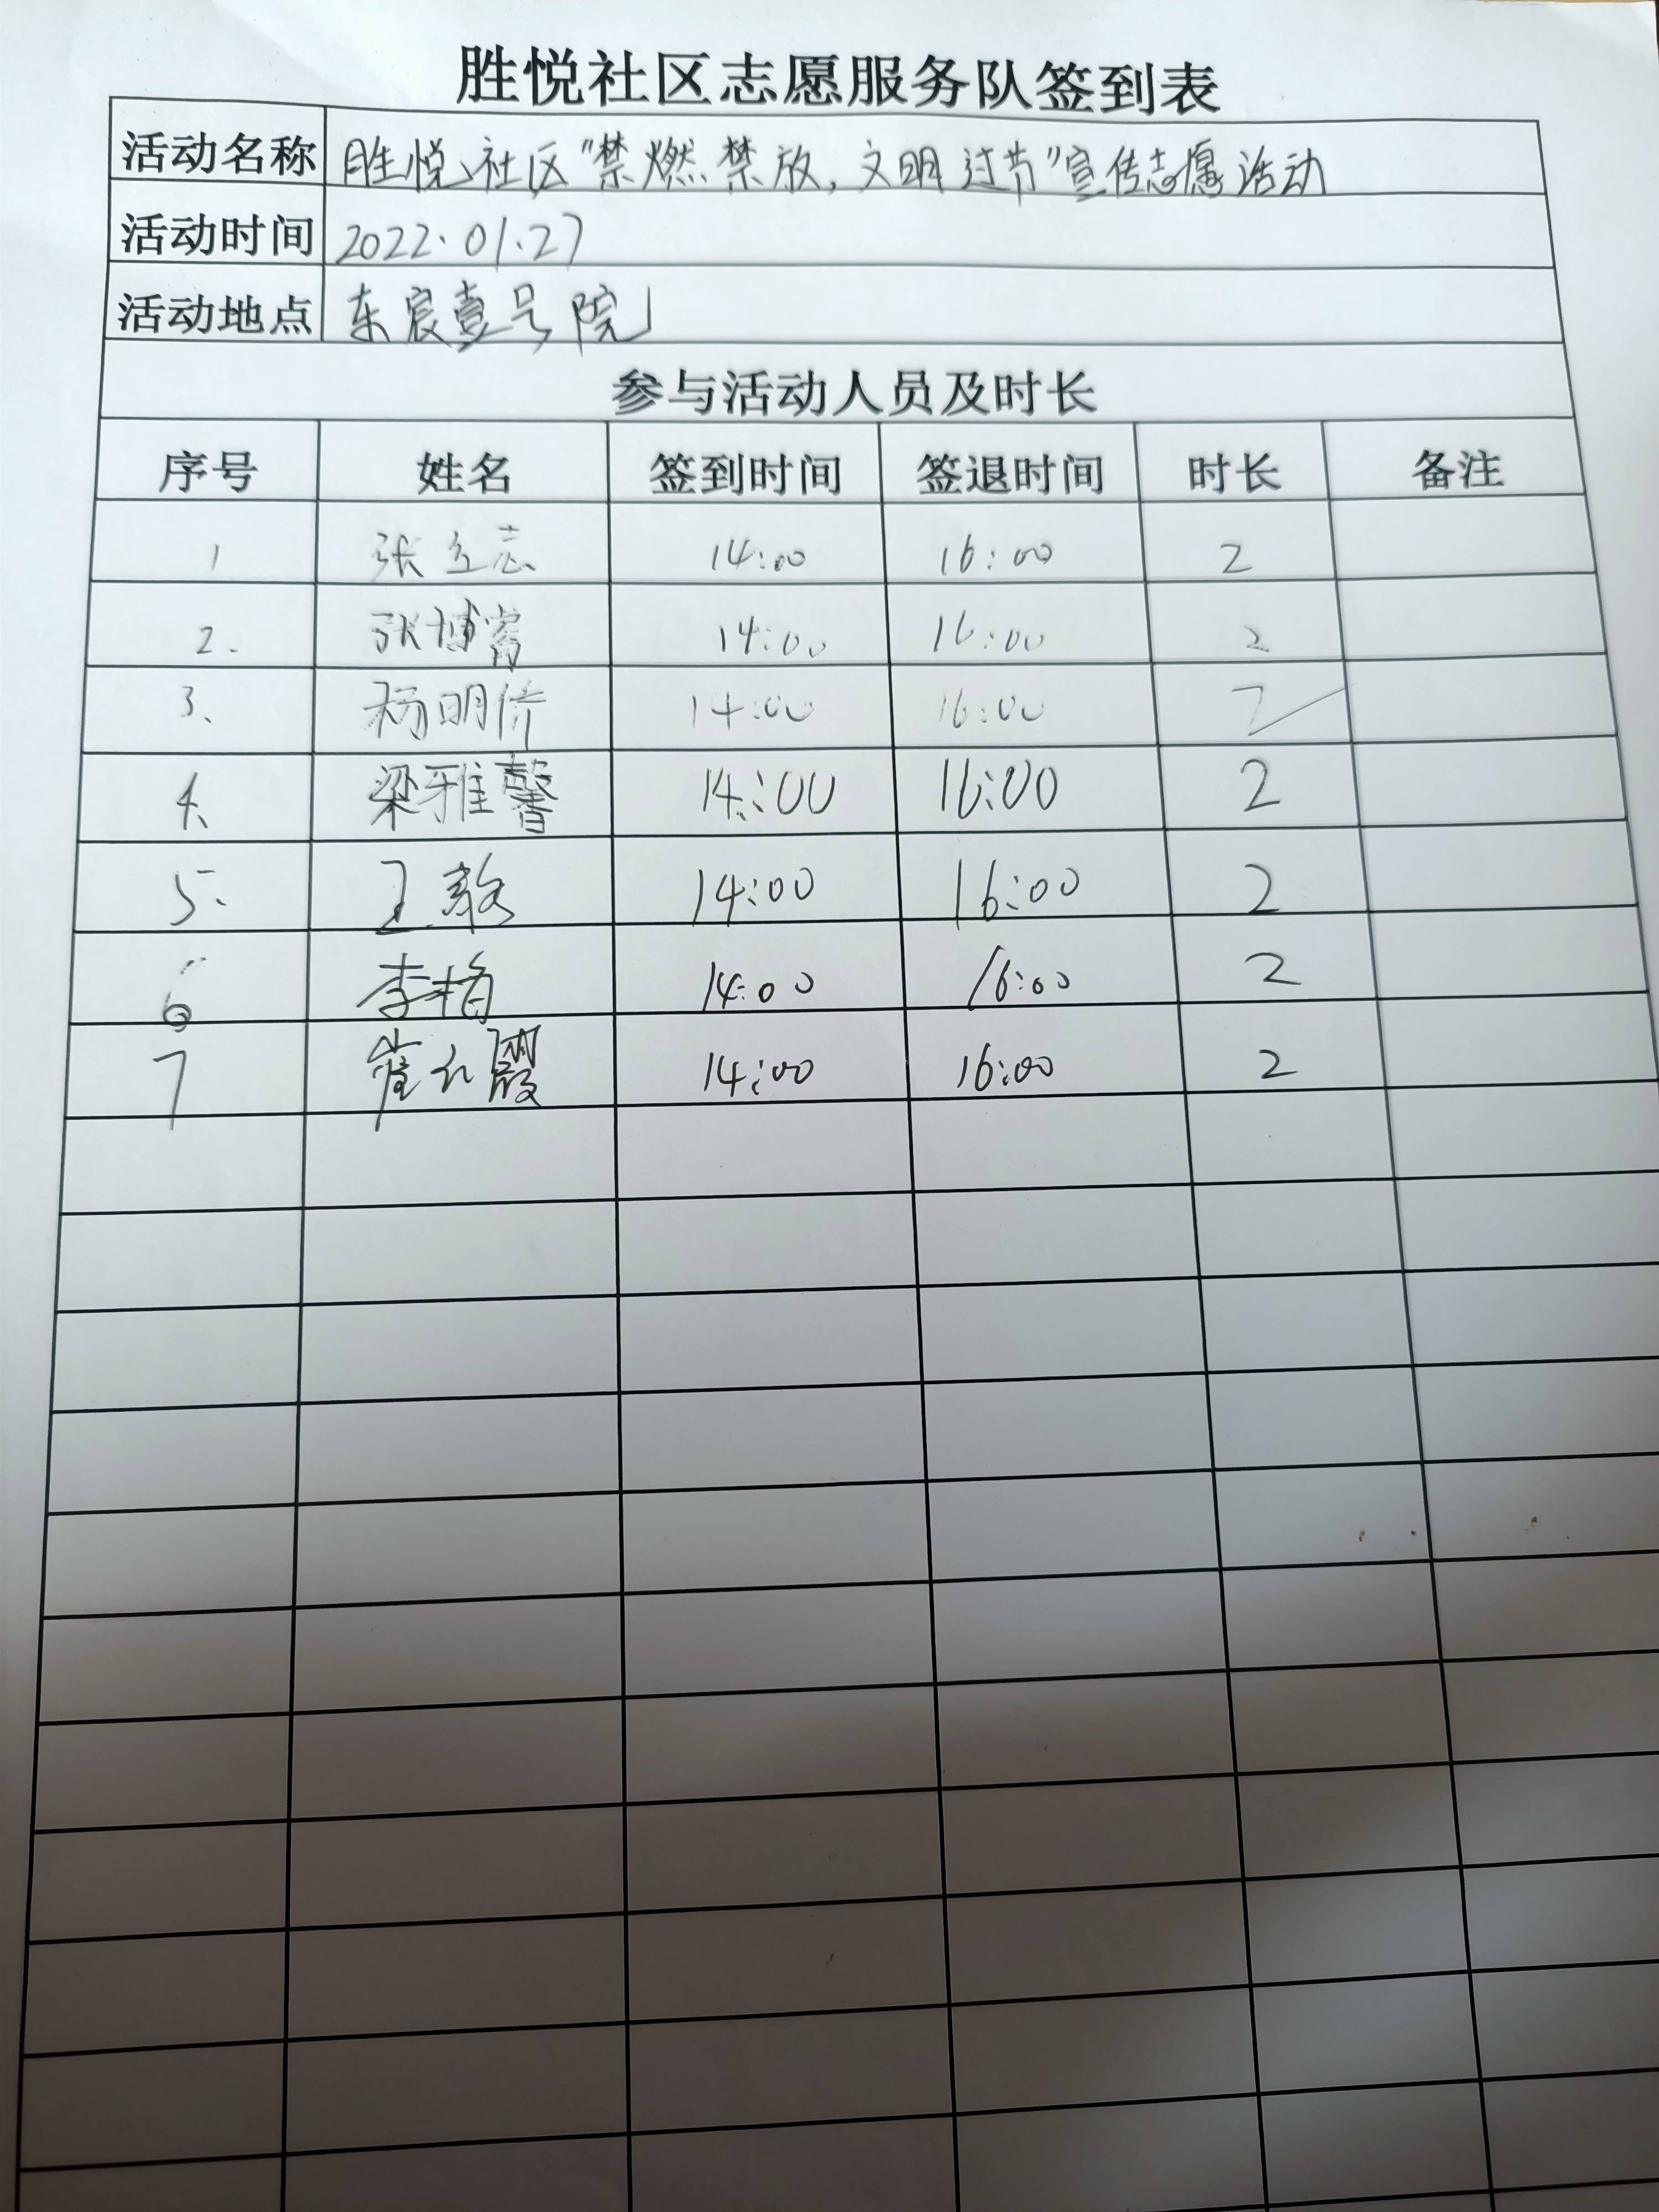 胜悦社区志愿服务队签到表
活动名称 胜悦社区"禁燃禁放,文明过节"宣传志愿活动
活动时间 2022.01.27
活动地点 东宸壹号院
参与活动人员及时长
序号 姓名 签到时间 签退时间 时长 备注
1 张立志 14:00 16:00 2
2. 张博富 14:00 16:00 2
3、 杨明侨 14:00 16:00 2
4、 梁雅馨 14:00 16:00 2
5. 王 14:00 16:00 2
6 李梅 14:00 16:00 2
7 崔红霞 14:00 16:00 2